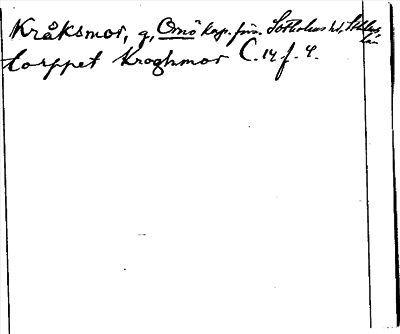 Kråksmor, g, Ornö kap. förs. Sotholms hd, Sthlms län
torppet Kroghmor C. 14. f. 4.